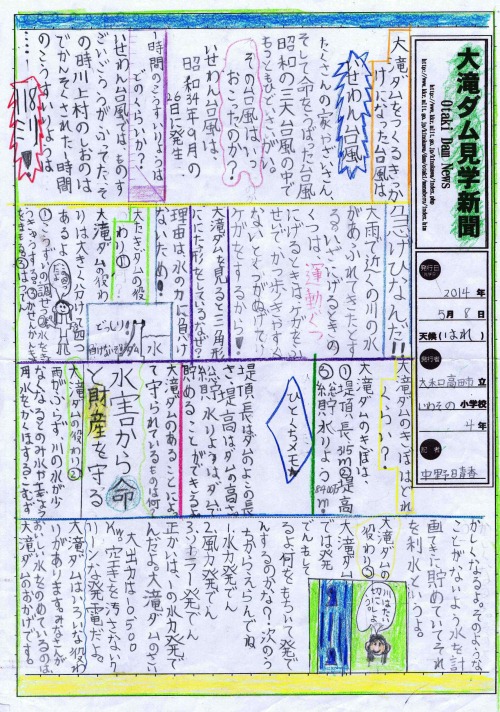 大滝ダム見学新聞
Otaki Dam News
発行日
2014年
5月8日
天候(はれ)
発行者
大和高田市立
いわその小学校
4年
記者
大滝ダムをつくるきっか
けになった台風は、
いせわん台風
たくさんの家やざいさん、
そして命をうばった台風
昭和の三大台風の中で
もっともひどいさいがい。
その台風は、いつ
おこったのか?
いせわん台風は
昭和34年9月の
26日に発生
1時間のこうすいりょうは
どのくらいか?
いせわん台風では、ものす
ごいごううがふってた。そ
の時川上村のおおのは
でかんそくされた1時間
のこうすいりょうは
……118ミリ
大雨で近くの川の水
があふれてきたとする。
にげるときのく
つは、運動ぐつ
にげるときはケガをし
ないし、とくつがぬけてい
がをするから。
大滝ダムを見ると三角形
ににた形をしているなぜ?
理由は、水の力に負け
ないため!
どっしり!!
水
大たきダムの役
わり①
大滝ダムの役わ
りは大きく分けて四つ
あるよ。
大滝ダムのきぼはどれ
くらい?
大滝ダムのきぼは、
①堤頂長315m②堤高
ひとくちメモ
堤頂長はダムのよこの長
さ、堤高はダムの高さ、
総貯水りょうは、ダムに
貯めることができる水
大滝ダムのあることによっ
て守られているものは何?
水害から命
と財産を守る
大滝ダムの役わり②
雨がふらず、川の水が少
なくなるとのみ水や家てい
用水をかくほするこむず
かしくなるよ。そのような
ことがないよう水を計
画きに貯めていてそれ
を利水というよ。
川はたい
切にしよう
大滝ダムの
役わり③
大滝ダム
では発
でんもして
るよ何をもちいて発で
んするのかな?次のう
ちからえらんでね
1.水力発でん
2.風力発でん
3.ソーラー発でん
正かいは、1の水力発で
んだよ。大滝ダムのさい
大出力は10500
Kw。空きを汚さないク
リーンな発電だよ。
大滝ダムはいろいろな役わ
りがあります。みなさんが
おいしい水をのめているのは、
大滝ダムのおかげです。